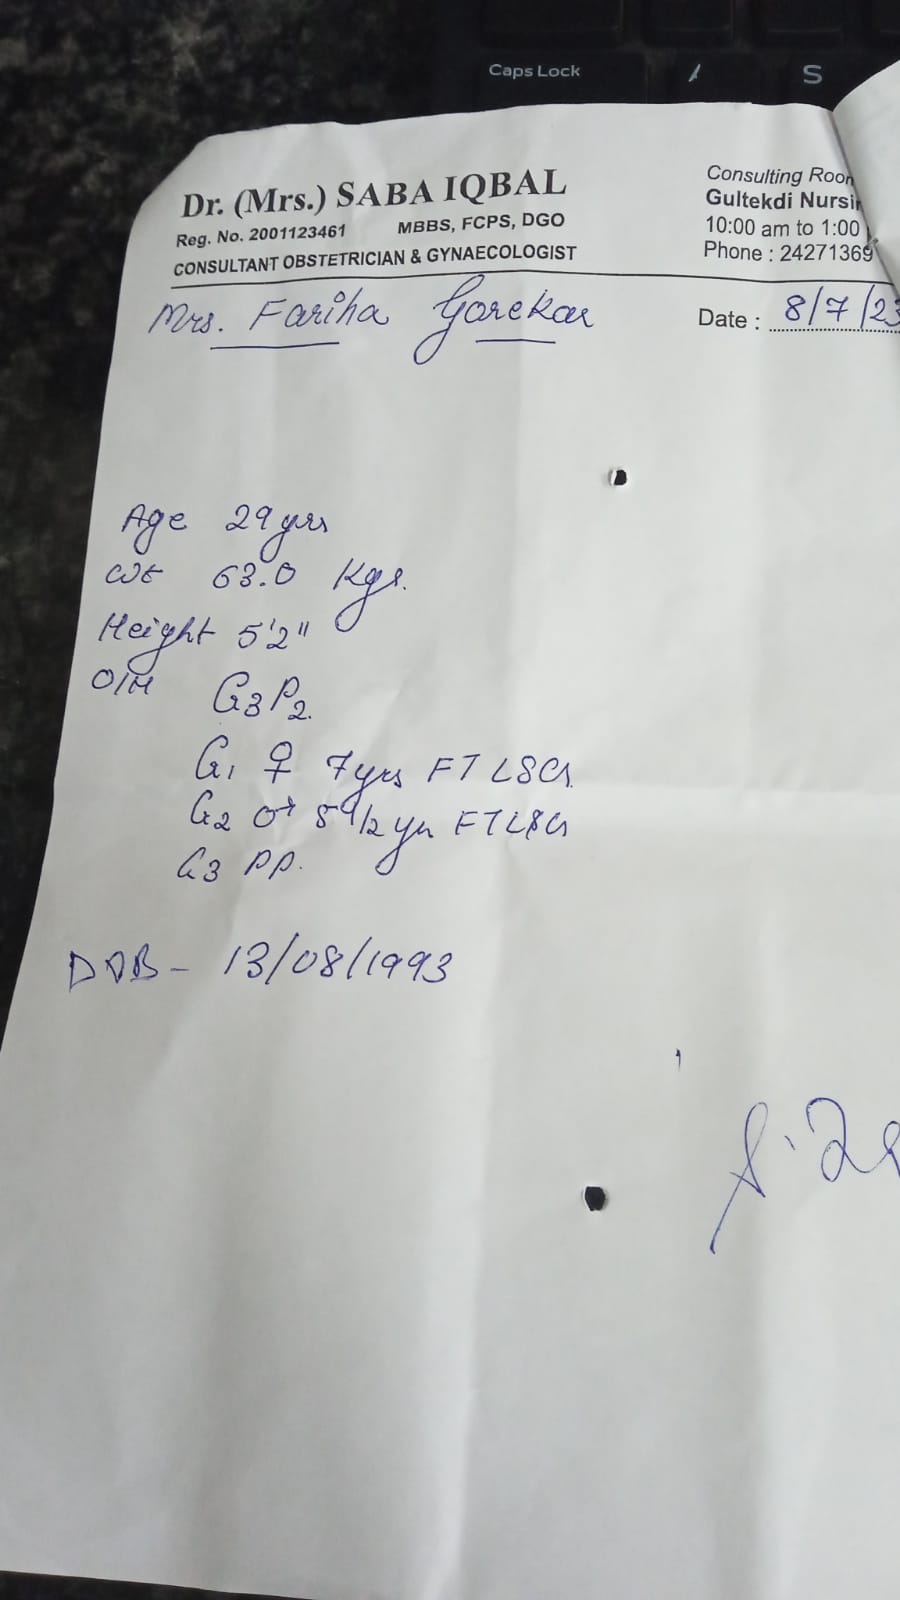 Caps Lock
S
Dr. (Mrs.) SABA IQBAL
Reg. No. 2001123461 MBBS, FCPS, DGO
CONSULTANT OBSTETRICIAN & GYNAECOLOGIST
Consulting Room
Gultekdi Nursin
10:00 am to 1:00
Phone : 24271369
Mrs. Fariha Gorekar
Date : 8/7/23
Age 29 yrs
Wt 63.0 Kgs.
Height 5'2"
O/H G3P2.
G1 ♀ 7yrs FT LSCS
G2 ♂ 5 1/2 yrs FTLSCS
G3 PP.
DOB - 13/08/1993